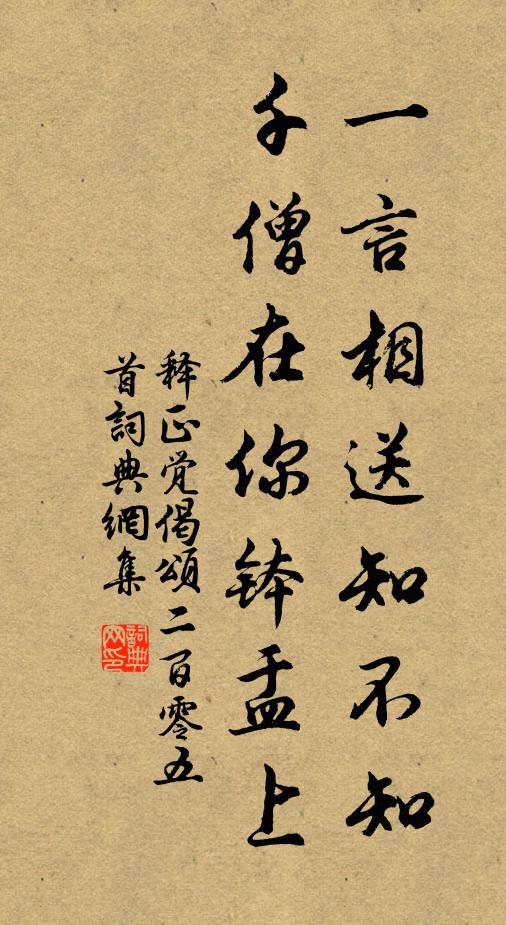 一言相送知不知
千僧在你钵盂上
释正觉偈頌二百零五
首詞典網集
詞典
网印